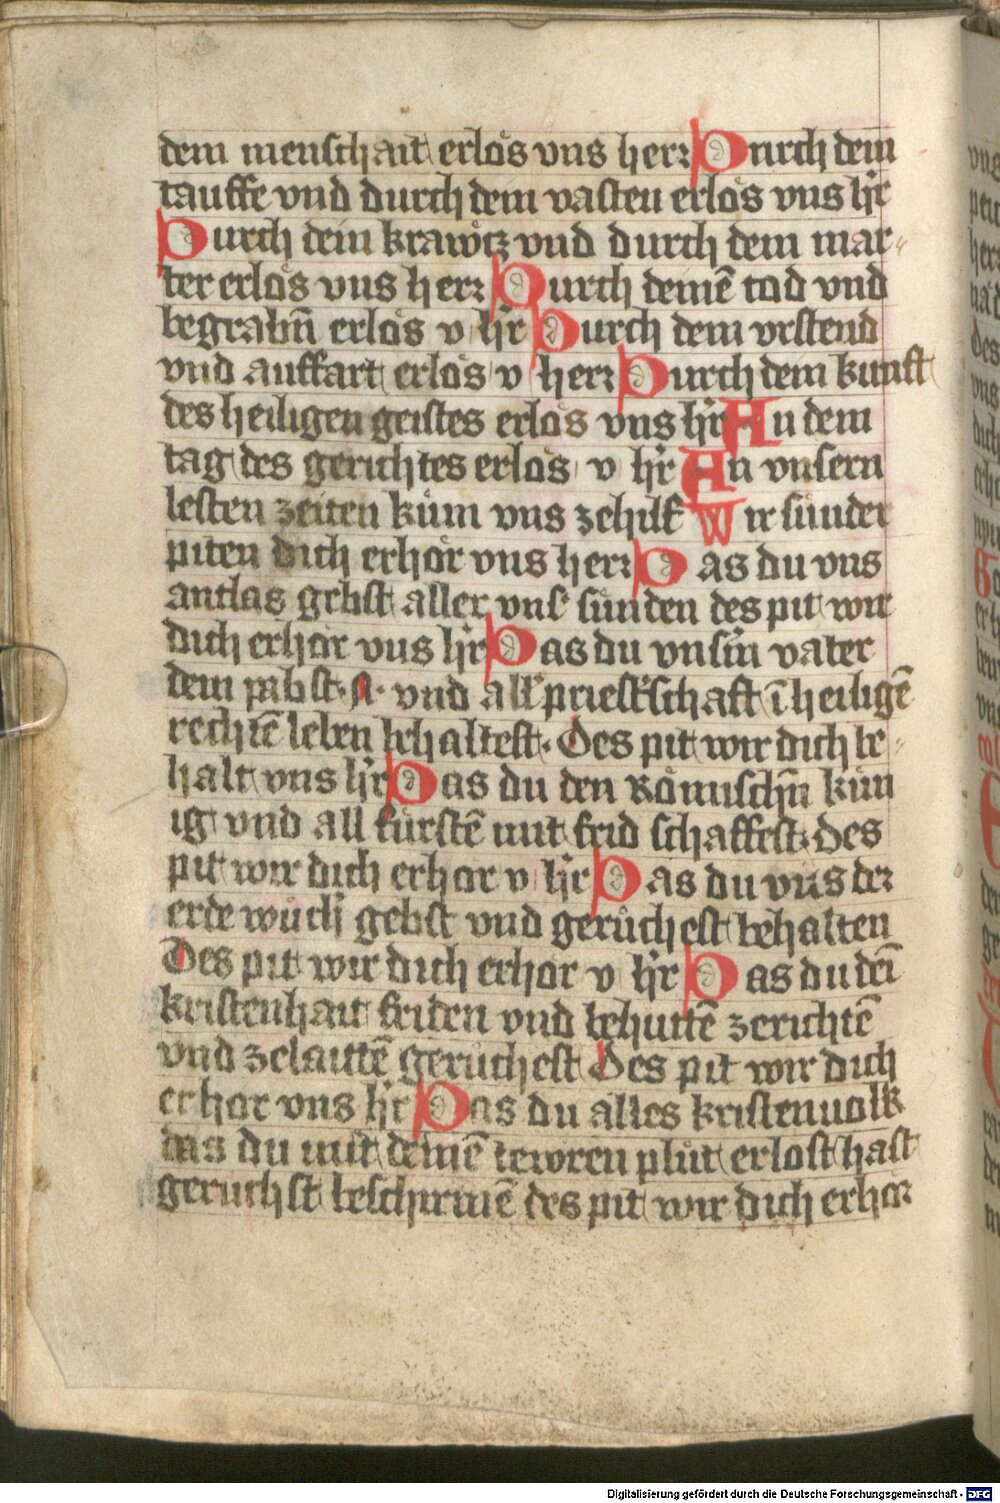 dein menschait erlôs vns herr Durch dein
tauffe vnd durch dein vasten erlôs vns hr̄
Durch dein krawtz vnd durch dein mar-
ter erlôs vns herr Durch deinē tod vnd
begrabn̄ erlôs v hr̄ Durch dein vrstend
vnd auffart erlôs v herr Durch dein kunft
des heiligen geistes erlôs vns hr̄ An dem
tag des gerichtes erlôs v hr̄ An vnsern
lesten zeiten kum vns zehilf Wir sunder
piten dich erhôr vns herr Das du vns
antlas gebst aller vns̄ sunden des pit wir
dich erhôr vns hr̄ Das du vnsn̄ vater
dem pabst .N. vnd all priest̄schaft ī heiligē
rechtē leben behaltest. Des pit wir dich be-
halt vns hr̄ Das du den Rômischn̄ kün
ig vnd all fürstē mit frid schaffest. Des
pit wir dich erhôr v hr̄ Das du vns der
erde wůch gebst vnd gerůchest behalten
Des pit wir dich erhor v hr̄ Das du dei
kristenhait friden vnd behutē zerichtē
vnd zelaittē gerůchest Des pit wir dich
erhor vns hr̄ Das du alles kristenuolk
das du mit deinē tewren plůt erlost hast
geruchst beschirmē des pit wir dich erhor
Digitalisierung gefördert durch die Deutsche Forschungsgemeinschaft - DFG